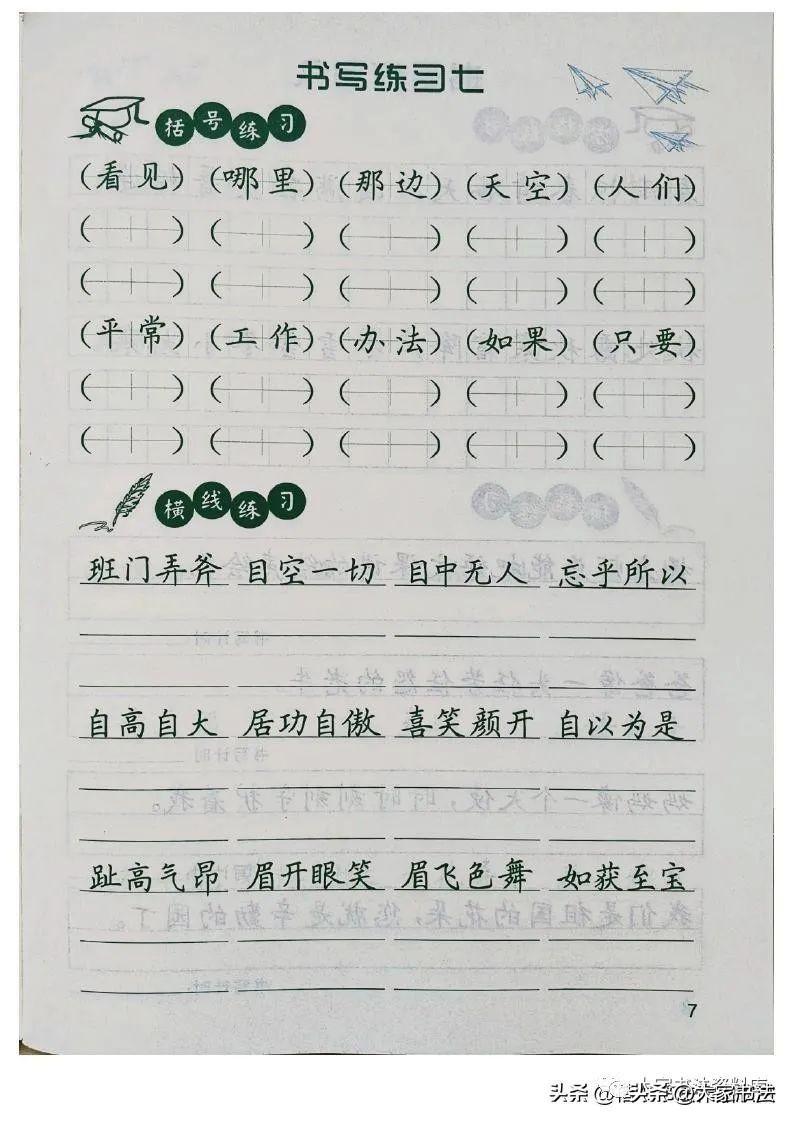 书写练习七
括号练习
(看见) (哪里) (那边) (天空) (人们)
(平常) (工作) (办法) (如果) (只要)
横线练习
班门弄斧 目空一切 目中无人 忘乎所以
自高自大 居功自傲 喜笑颜开 自以为是
趾高气昂 眉开眼笑 眉飞色舞 如获至宝
7